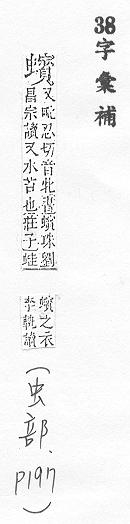 38字彙補
蠙 又毗忍切音牝書蠙珠劉
昌宗讀又水苔也莊子蛙
蠙之衣
李軌讀
(虫部、p197)